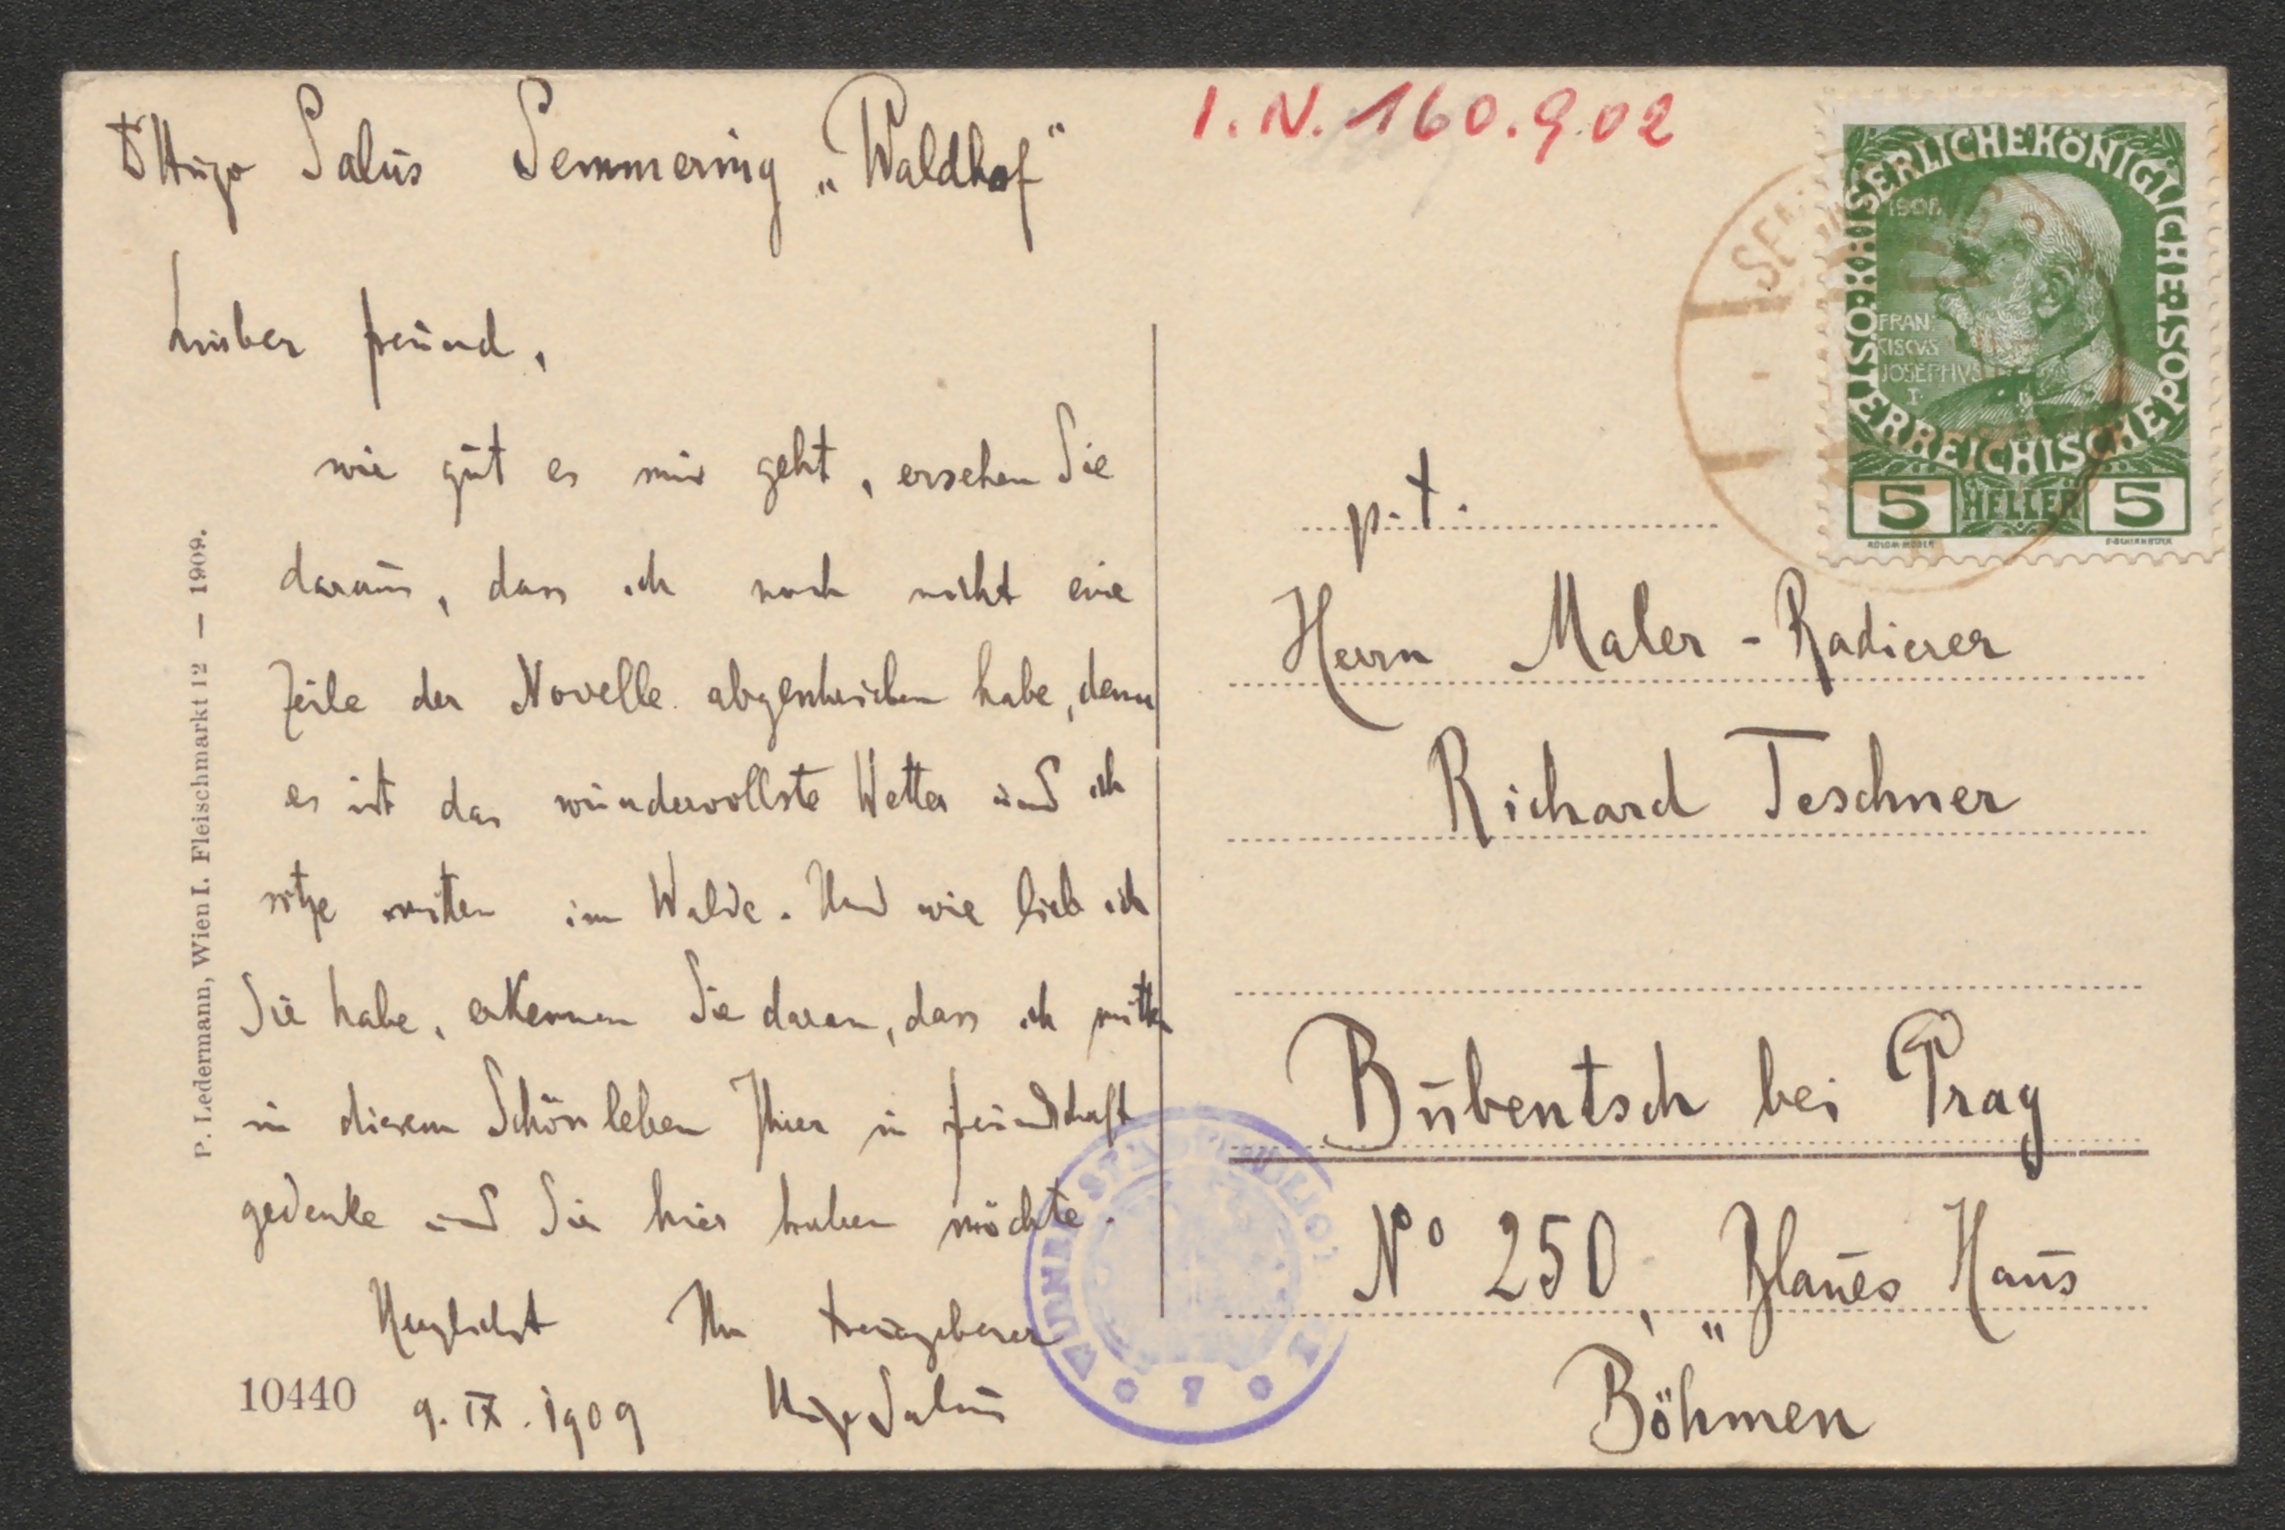 Dr Hugo Salus Semmering „Waldhof“
Lieber Freund,
wie gut es mir geht, ersehen Sie
daraus, dass ich noch nicht eine
Zeile der Novelle abgeschrieben habe, denn
es ist das wundervollste Wetter und ich
sitze mitten im Walde. Und wie lieb ich
Sie habe, erkennen Sie daran, dass ich mitten
in diesem Schönleben Ihrer in Freundschaft
gedenke und Sie hier haben möchte.
Herzlichst Ihr treuergebener
9. IX. 1909 Hugo Salus
10440
P. Ledermann, Wien I. Fleischmarkt 12 — 1909.
I.N. 160.902
KAISERLICHEKÖNIGLICHE POST
ÖSTERREICHISCHE
1908
FRAN
CISCVS
JOSEPHVS
I.
5 HELLER 5
p.t.
Herrn Maler-Radierer
Richard Teschner
Bubentsch bei Prag
No 250, „Blaues Haus
Böhmen